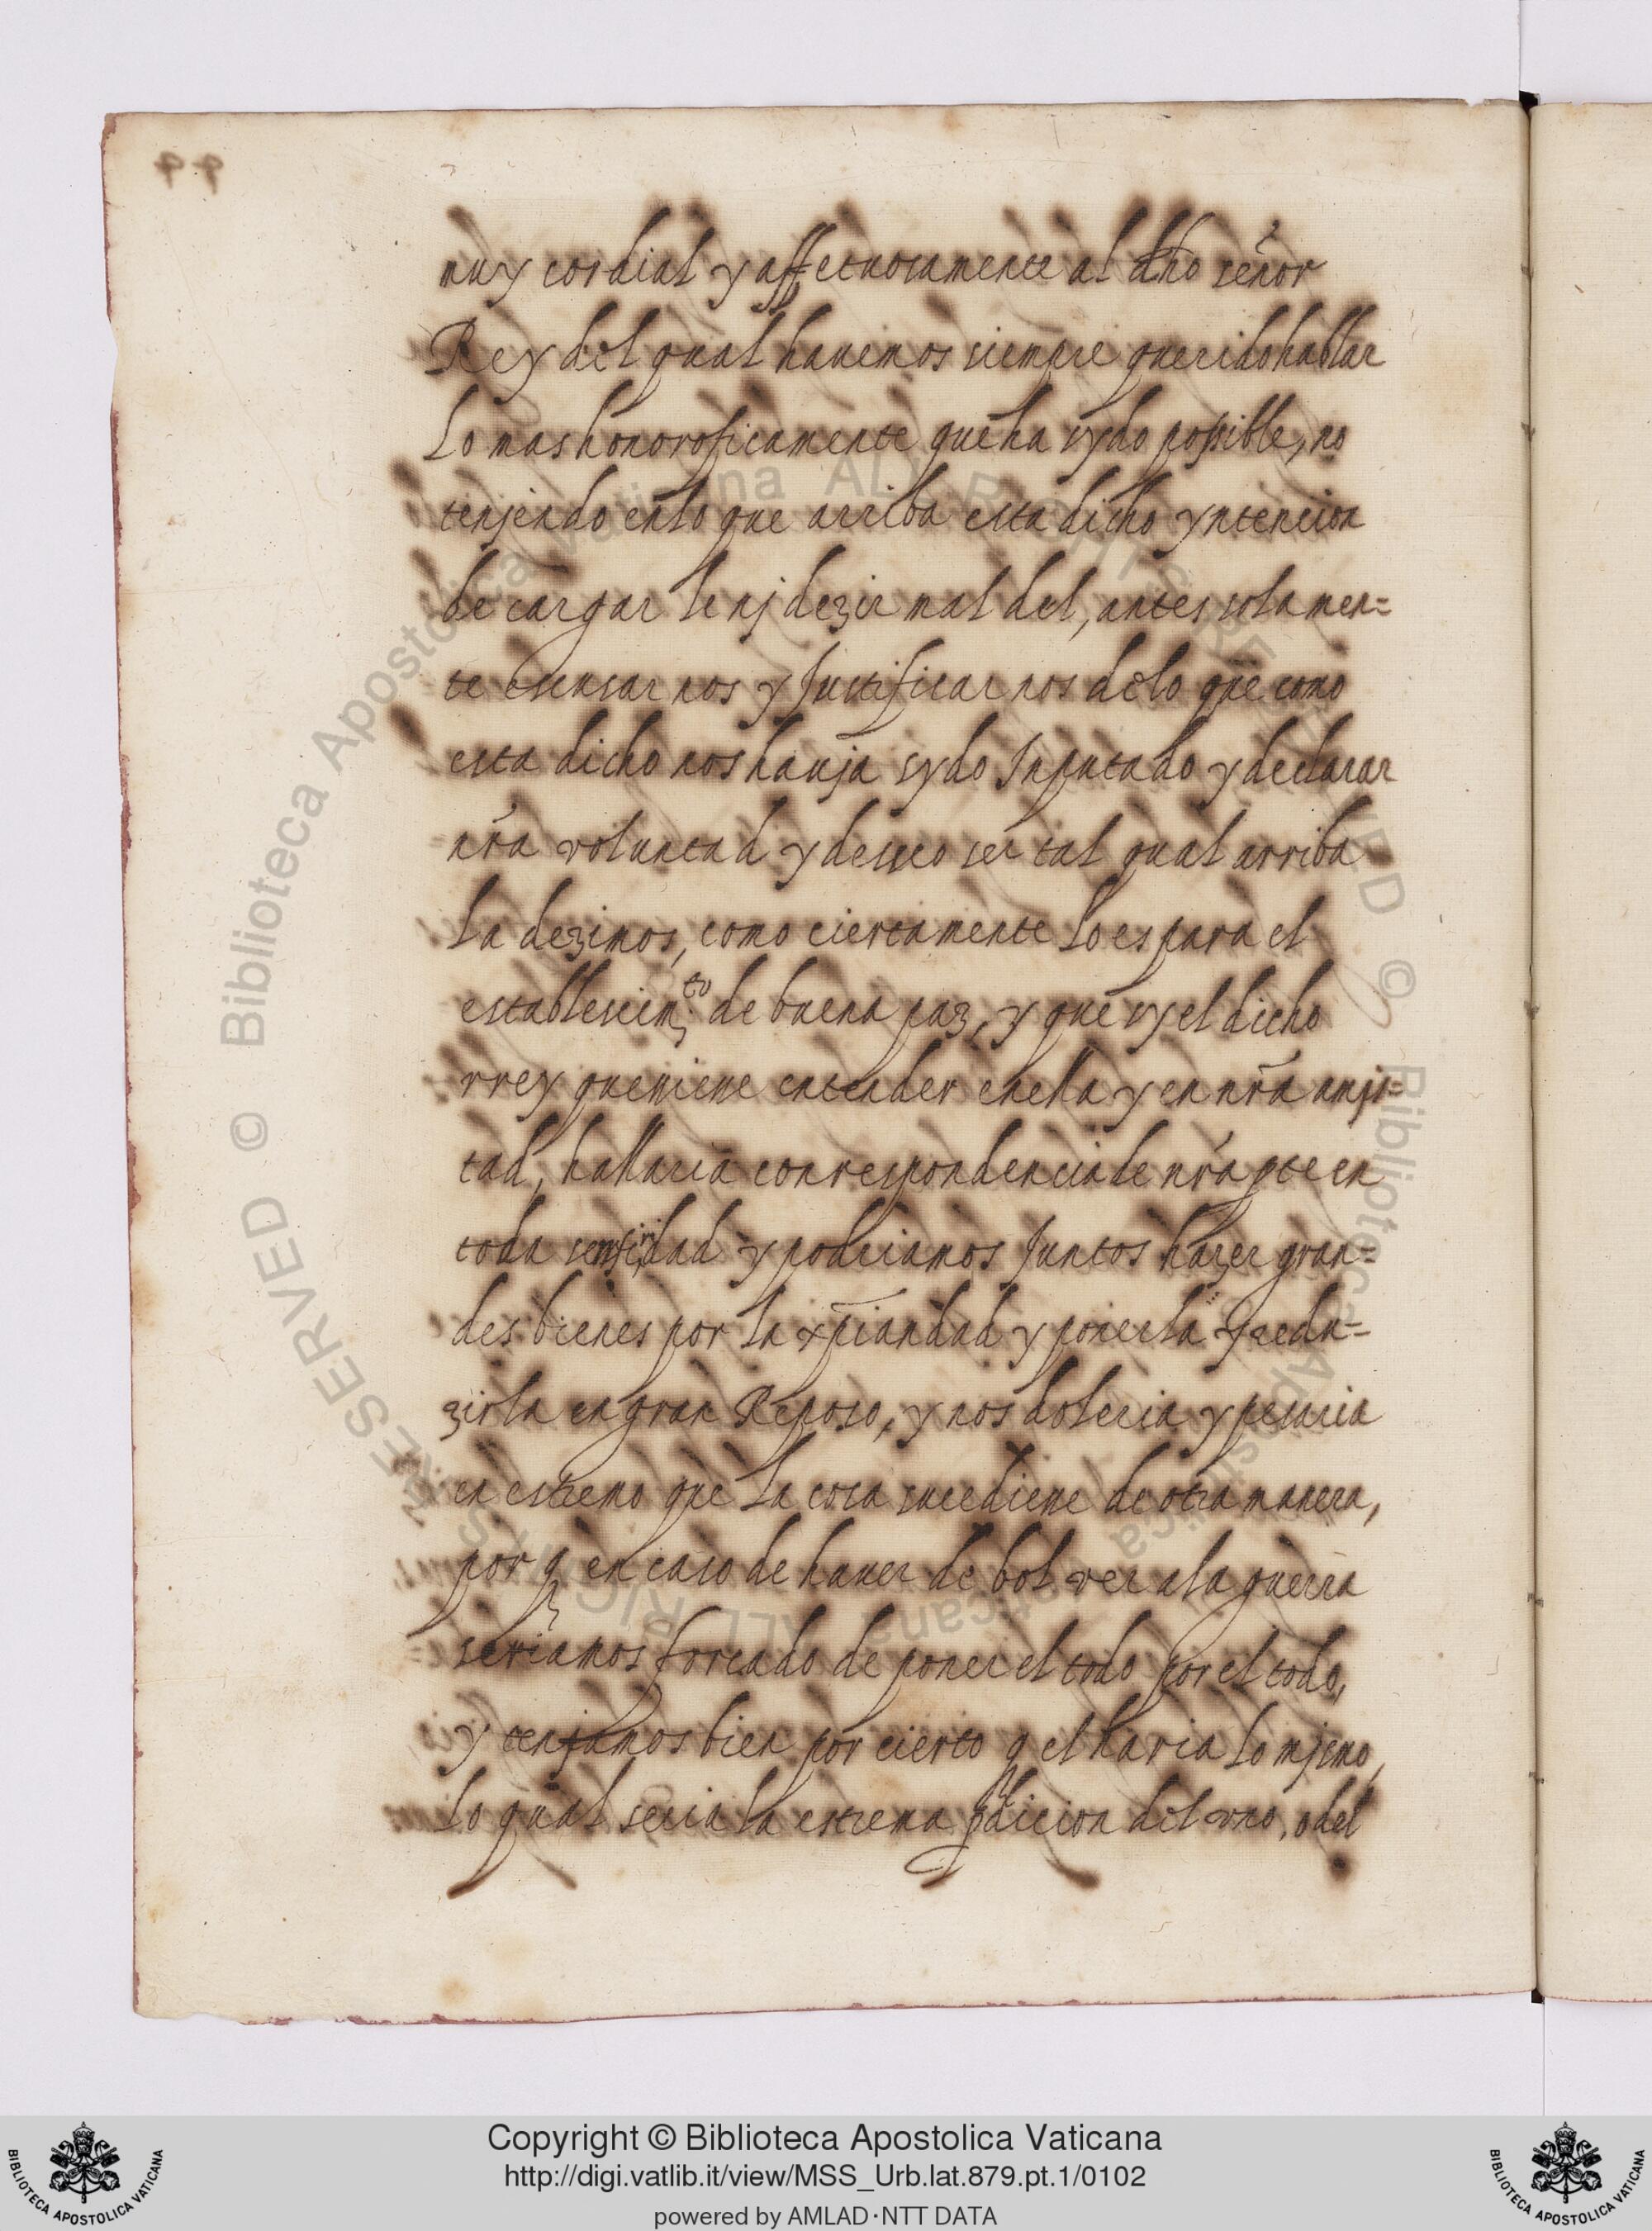 muy cordial y affectuosamente al dho señor
Rey del qual hauemos siempre querido hablar
Lo mas honoroficamente que ha sydo possible, no
tenjendo en lo que arriba esta dicho yntencion
de cargar le nj dezir mal del, antes solamen=
te escusar nos y Justificar nos de lo que como
esta dicho nos hauja sydo Inputado y declarar
nra voluntad y desseo ser tal qual arriba
La dezimos, como ciertamente Lo es para el
establescimto de buena paz, y que sy el dicho
rrey quesiese entender en ella y en nra amjs=
tad, hallaria correspondencia de nra pte en
toda y podriamos Juntos hazer gran=
des bienes por la xpiandad y ponerla y redu=
zirla en gran Reposo, y nos doleria y pesaria
en estremo que La cosa sucediese de otra manera,
por q en caso de hauer de bolver a la guerra
seriamos forcado de poner el todo por el todo,
y tenjamos bien por cierto q el haria Lo mjsmo,
Lo qual seria la estrema pdicion del vno, o del
Biblioteca Apostolica Vaticana ALL RIGHTS RESERVED ©
Copyright © Biblioteca Apostolica Vaticana
http://digi.vatlib.it/view/MSS_Urb.lat.879.pt.1/0102
powered by AMLAD·NTT DATA
BIBLIOTECA APOSTOLICA VATICANA
BIBLIOTECA APOSTOLICA VATICANA